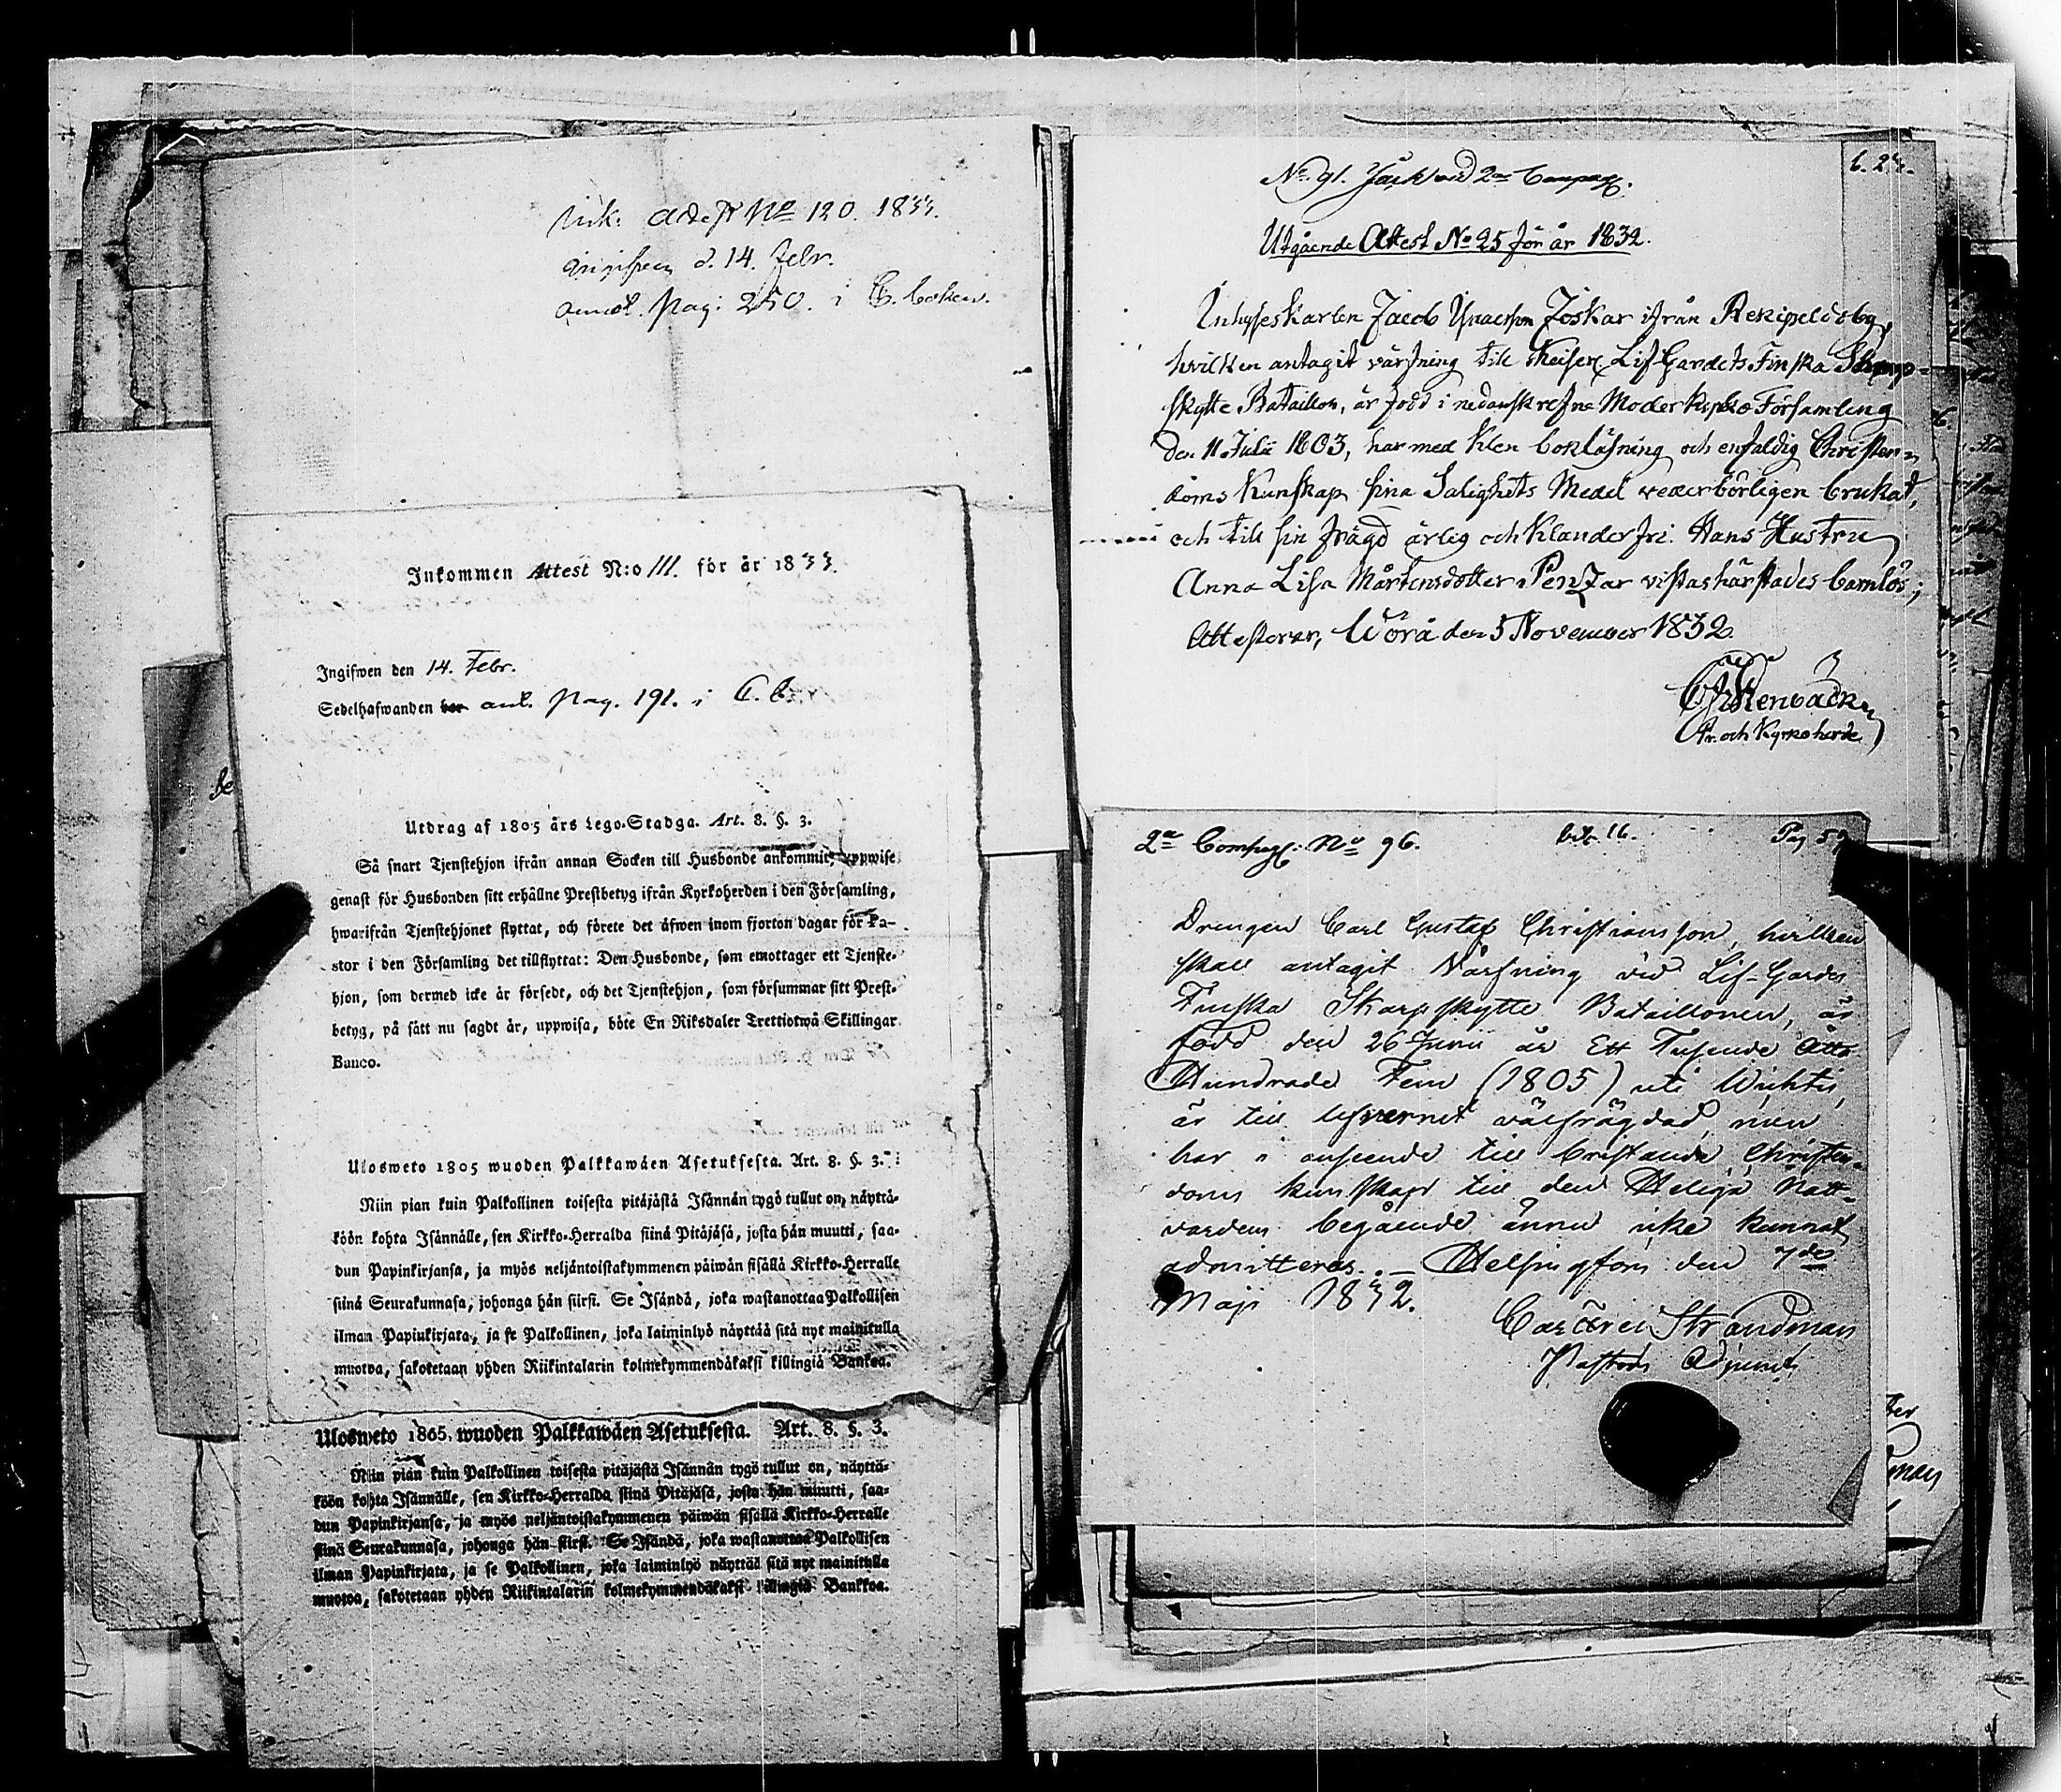 Ink. Attest No 120. 1833.
Ingifven d. 14. Febr.
annot. Pag: 250. i C. boken.
Inkommen Attest N:o 111. för år 1833.
Ingifwen den 14. Febr.
Sedelhafwanden ant. Pag. 191. i C. b.
Utdrag af 1805 års Lego-Stadga. Art. 8. §. 3.
Så snart Tjenstehjon ifrån annan Socken till Husbonde ankommit, uppwise
genast för Husbonden sitt erhållne Prestbetyg ifrån Kyrkoherden i den Församling,
hwarifrån Tjenstehjonet flyttat, och förete det äfwen inom fjorton dagar för Pa-
stor i den Församling det tillflyttat: Den Husbonde, som emottager ett Tjenste-
hjon, som dermed icke är försedt, och det Tjenstehjon, som försummar sitt Prest-
betyg, på sätt nu sagdt är, uppwisa, böte En Riksdaler Trettiotwå Skillingar
Banco.
Ulosweto 1805 wuoden Palkkawäen Asetuksesta. Art. 8. §. 3.
Niin pian kuin Palkollinen toisesta pitäjästä Isännän tygö tullut on, näyttä-
köön kohta Isännälle, sen Kirkko-Herralda siinä Pitäjäsä, josta hän muutti, saa-
dun Papinkirjansa, ja myös neljäntoistakymmenen päiwän sisällä Kirkko-Herralle
siinä Seurakunnasa, johonga hän siirsi. Se Isändä, joka wastanottaa Palkollisen
ilman Papinkirjata, ja se Palkollinen, joka laiminlyö näyttää sitä nyt mainitulla
muotoa, sakotetaan yhden Riikintalarin kolmekymmendäkaksi killingiä Bankoa.
Ulosweto 1865. wuoden Palkkawäen Asetuksesta. Art. 8. §. 3.
Niin pian kuin Palkollinen toisesta pitäjästä Isännän tygö tullut on, näyttä-
köön kohta Isännälle, sen Kirkko-Herralda siinä Pitäjäsä, josta hän muutti, saa-
dun Papinkirjansa, ja myös neljäntoistakymmenen päiwän sisällä Kirkko-Herralle
siinä Seurakunnasa, johonga hän siirsi. Se Isändä, joka wastanottaa Palkollisen
ilman Papinkirjata, ja se Palkollinen, joka laiminlyö näyttää sitä nyt mainitulla
muotoa, sakotetaan yhden Riikintalarin kolmekymmendäkaksi killingiä Bankkoa.
No 91. vid 2a Compagt.
Utgående Attest No 25 för år 1832.
Inhyseskarlen Jacob Joskar ifrån Rekipeldoby,
hvilken antagit värfning till Keiserl. Lif-Gardets Finska Skarp-
skytte Bataillon, är född i nedanskrefne Moderkyrko Församling
den 11 Julii 1803, har med klen bokläsning och enfaldig Christen-
doms Kunskap sina Salighets Medel vederbörligen brukat,
och till sin frägd ärlig och klanderfri. Hans Hustru
Anna Lisa Mårtensdotter Penjar vistas härstädes barnlös;
Attesterar, Wörå den 5 November 1832.
Stenbäck
Pr. och Kyrkoherde
2a Compagt. No 96. bil. 16. Pag 59
Drengen Carl Gustaf Christiansson, hvilken
skall antagit Värfning vid Lif-Gardes
Finska Skarpskytte Bataillonen, är
född den 26 Junii år Ett Tusende Åtta
Hundrade Fem (1805) uti Wichtis,
är till lefvernet välfrägdad, men
har i anseende till bristande Christen-
doms kunskap till den Heliga Natt-
vardens begående ännu icke kunnat
admitteras. — Helsingfors den 7de
Maji 1832.
Strandman
Pastors Adjunct